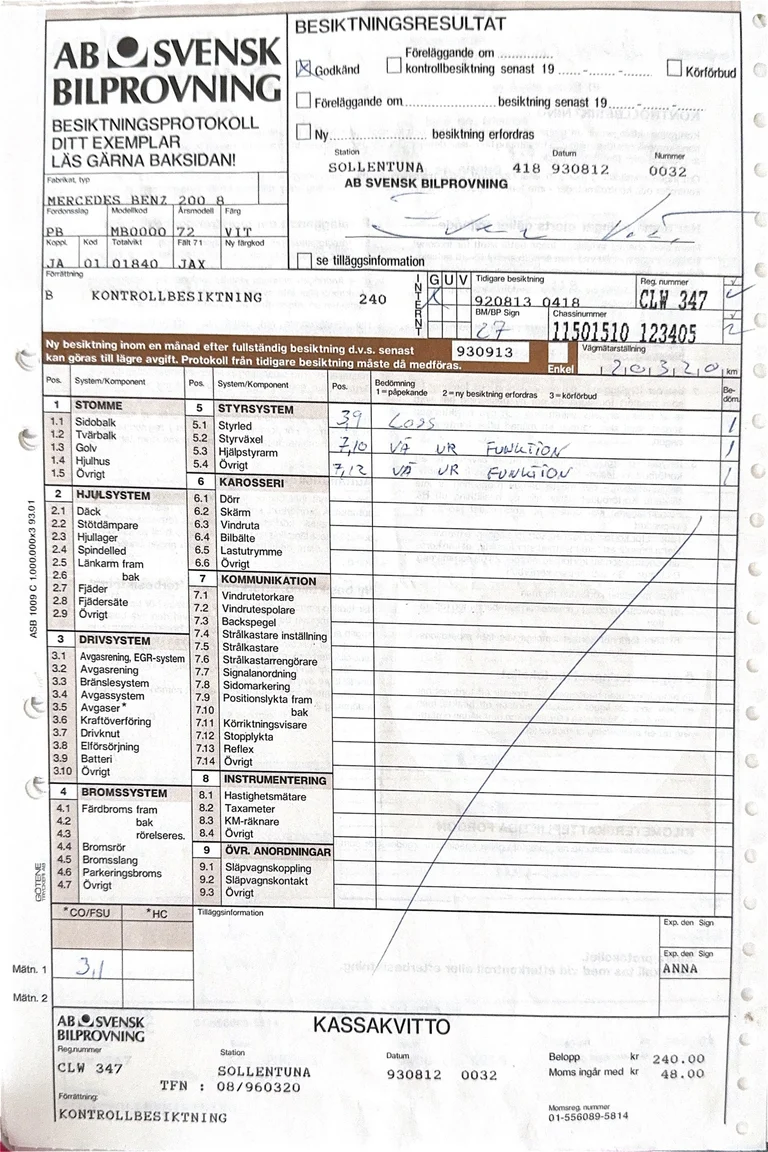 AB SVENSK
BILPROVNING
BESIKTNINGSPROTOKOLL
DITT EXEMPLAR
LÄS GÄRNA BAKSIDAN!
BESIKTNINGSRESULTAT
Godkänd
Föreläggande om ..............
kontrollbesiktning senast 19 ......-......-......
Körförbud
Föreläggande om........................ besiktning senast 19......-......-......
Ny........................ besiktning erfordras
Station Datum Nummer
SOLLENTUNA 418 930812 0032
AB SVENSK BILPROVNING
se tilläggsinformation
Fabrikat, typ
MERCEDES BENZ 200 8
Fordonsslag Modellkod Årsmodell Färg
PB MB0000 72 VIT
Koppl. Kod Totalvikt Fält 71 Ny färgkod
JA 01 01840 JAX
Förrättning
B KONTROLLBESIKTNING 240
INTERNT
G U V Tidigare besiktning Reg. nummer
920813 0418 CLW 347
BM/BP Sign Chassinummer
27 11501510 123405
Ny besiktning inom en månad efter fullständig besiktning d.v.s. senast
kan göras till lägre avgift. Protokoll från tidigare besiktning måste då medföras.
930913
Enkel
Vägmätarställning
12032,0 km
Pos. System/Komponent Pos. System/Komponent Pos. Bedömning Be-
döm.
1 = påpekande 2 = ny besiktning erfordras 3 = körförbud
3,9 LOSS 1
7,10 VÄ UR FUNKTION 1
7,12 VÄ UR FUNKTION 1
1 STOMME
1.1 Sidobalk
1.2 Tvärbalk
1.3 Golv
1.4 Hjulhus
1.5 Övrigt
2 HJULSYSTEM
2.1 Däck
2.2 Stötdämpare
2.3 Hjullager
2.4 Spindelled
2.5 Länkarm fram
2.6 bak
2.7 Fjäder
2.8 Fjädersäte
2.9 Övrigt
3 DRIVSYSTEM
3.1 Avgasrening, EGR-system
3.2 Avgasrening
3.3 Bränslesystem
3.4 Avgassystem
3.5 Avgaser*
3.6 Kraftöverföring
3.7 Drivknut
3.8 Elförsörjning
3.9 Batteri
3.10 Övrigt
4 BROMSSYSTEM
4.1 Färdbroms fram
4.2 bak
4.3 rörelseres.
4.4 Bromsrör
4.5 Bromsslang
4.6 Parkeringsbroms
4.7 Övrigt
5 STYRSYSTEM
5.1 Styrled
5.2 Styrväxel
5.3 Hjälpstyrarm
5.4 Övrigt
6 KAROSSERI
6.1 Dörr
6.2 Skärm
6.3 Vindruta
6.4 Bilbälte
6.5 Lastutrymme
6.6 Övrigt
7 KOMMUNIKATION
7.1 Vindrutetorkare
7.2 Vindrutespolare
7.3 Backspegel
7.4 Strålkastare inställning
7.5 Strålkastare
7.6 Strålkastarrengörare
7.7 Signalanordning
7.8 Sidomarkering
7.9 Positionslykta fram
7.10 bak
7.11 Körriktningsvisare
7.12 Stopplykta
7.13 Reflex
7.14 Övrigt
8 INSTRUMENTERING
8.1 Hastighetsmätare
8.2 Taxameter
8.3 KM-räknare
8.4 Övrigt
9 ÖVR. ANORDNINGAR
9.1 Släpvagnskoppling
9.2 Släpvagnskontakt
9.3 Övrigt
ASB 1009 C 1.000.000x3 93.01
GÖTENE
*CO/FSU *HC Tilläggsinformation
Exp. den Sign
Exp. den Sign
ANNA
Mätn. 1 3,1
Mätn. 2
AB SVENSK
BILPROVNING
KASSAKVITTO
Reg.nummer Station Datum
CLW 347 SOLLENTUNA 930812 0032
TFN : 08/960320
Belopp kr 240.00
Moms ingår med kr 48.00
Förrättning:
KONTROLLBESIKTNING
Momsreg. nummer
01-556089-5814